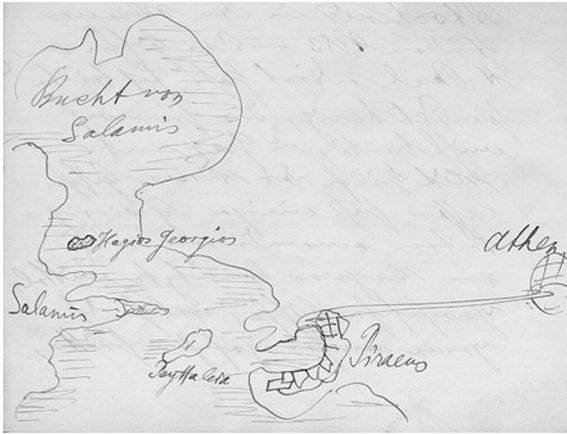 Bucht von
Salamis
Hagios Georgios
Athen
Salamis
Psyttaleia
Piraeus